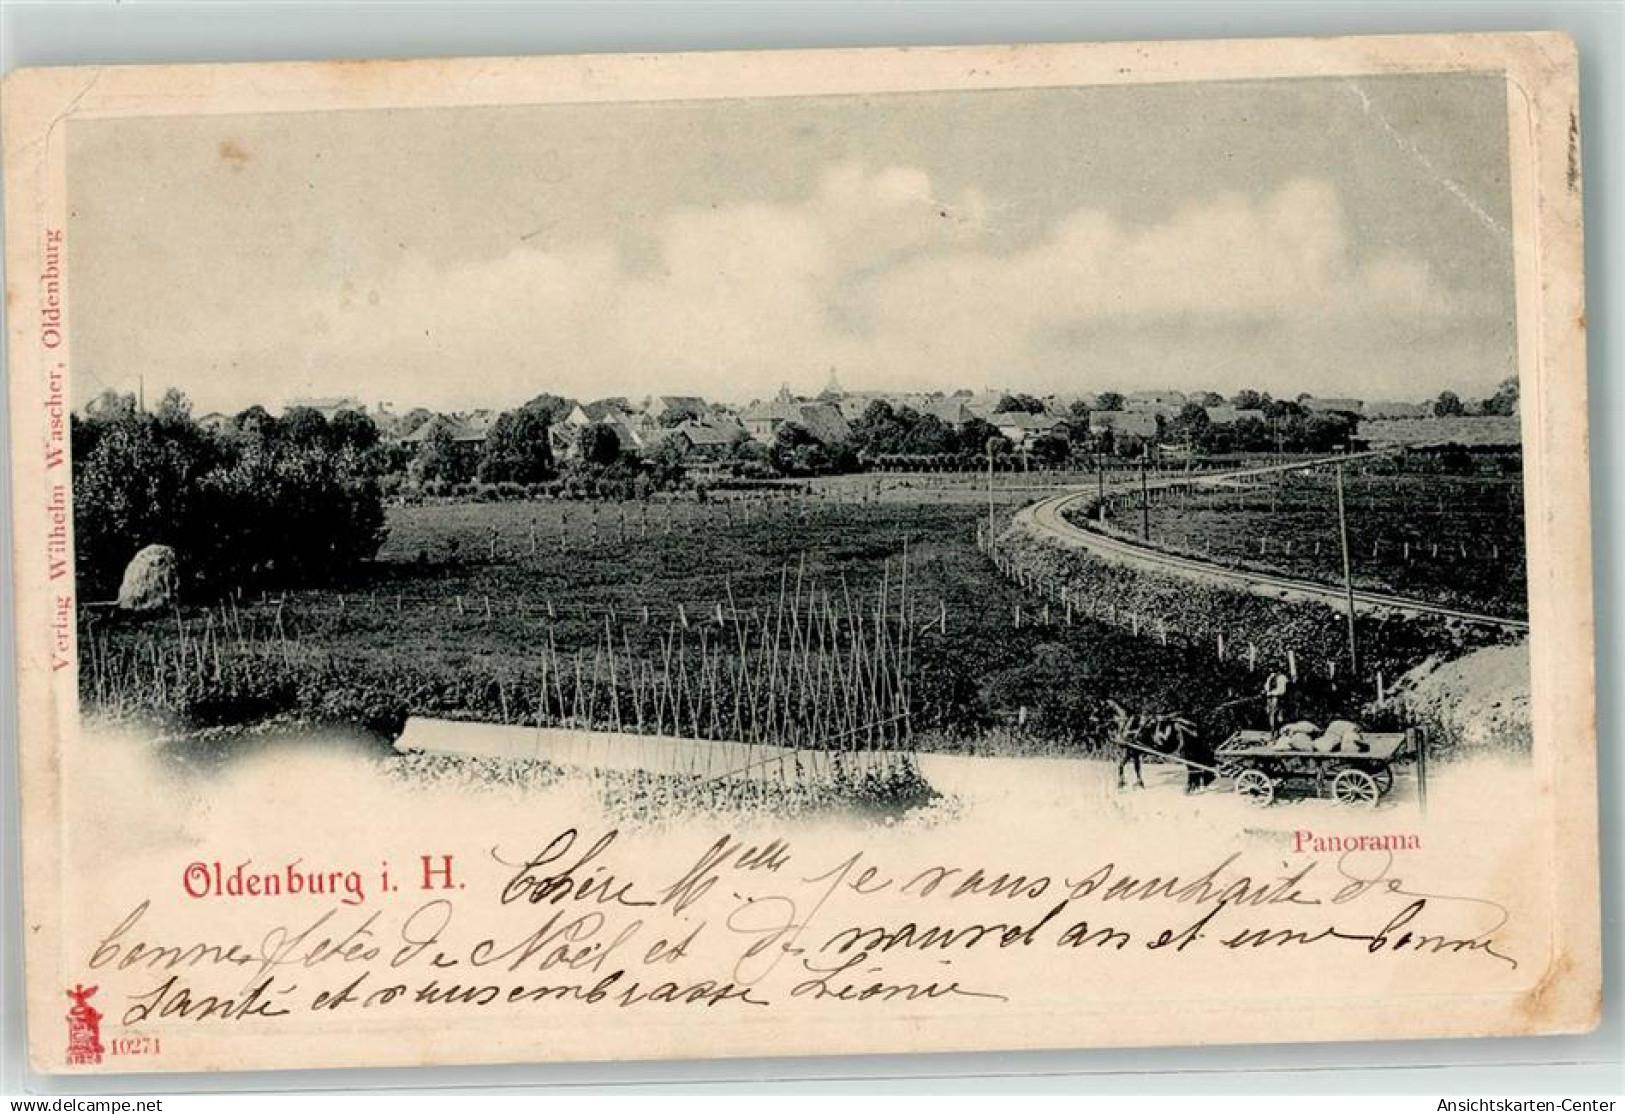 Verlag Wilhelm Wascher, Oldenburg
Panorama
Oldenburg i. H.
Chère Melle je vous souhaite de
bonnes fêtes de Noël et de nouvel an et une bonne
santé et vous embrasse Léonie
10271
delcampe.net
Ansichtskarten-Center